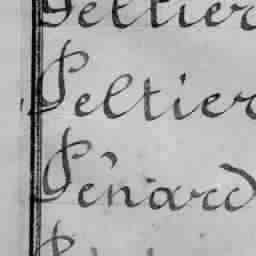 Peltier
Peltier
Pénard